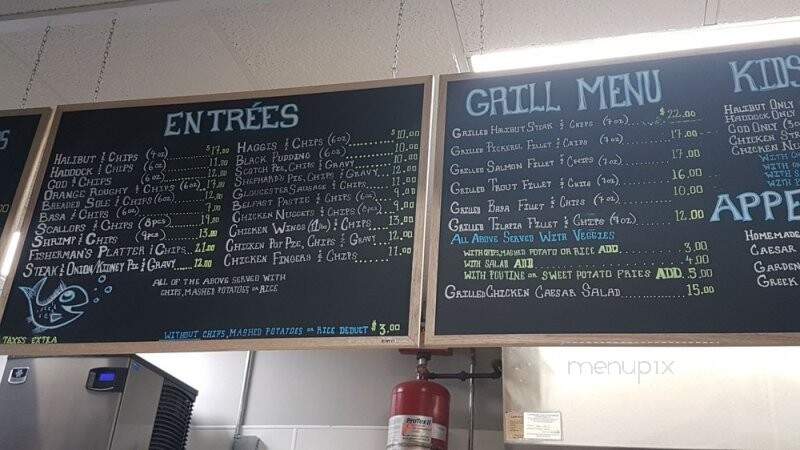 ENTRÉES
HALIBUT & CHIPS (7oz) $17.00
HADDOCK & CHIPS (6oz) 11.00
COD & CHIPS (6oz) 12.00
ORANGE ROUGHY & CHIPS (6oz) 17.00
BREADED SOLE & CHIPS (6oz) 12.00
BASA & CHIPS (6oz)
SCALLOPS & CHIPS (8pcs) 19.00
SHRIMP & CHIPS (9pcs) 13.00
FISHERMAN'S PLATTER & CHIPS 21.00
STEAK & ONION/KIDNEY PIE & GRAVY 12.00
HAGGIS & CHIPS (6oz) $10.00
BLACK PUDDING (6oz) 10.00
SCOTCH PIE, CHIPS & GRAVY 10.00
SHEPHARD'S PIE, CHIPS & GRAVY 12.00
GLOUCESTER SAUSAGE & CHIPS 11.00
BELFAST PASTIE & CHIPS (6oz) 9.00
CHICKEN NUGGETS & CHIPS (6oz) 9.00
CHICKEN WINGS (1lb) & CHIPS 13.00
CHICKEN POT PIE, CHIPS & GRAVY 12.00
CHICKEN FINGERS & CHIPS 11.00
ALL OF THE ABOVE SERVED WITH
CHIPS, MASHED POTATOES OR RICE
WITHOUT CHIPS, MASHED POTATOES OR RICE DEDUCT $3.00
TAXES EXTRA
GRILL MENU
GRILLED HALIBUT STEAK & CHIPS (7oz) $22.00
GRILLED PICKEREL FILLET & CHIPS (7oz) 17.00
GRILLED SALMON FILLET & CHIPS (7oz) 17.00
GRILLED TROUT FILLET & CHIPS (7oz) 16.00
GRILLED BASA FILLET & CHIPS (7oz) 10.00
GRILLED TILAPIA FILLET & CHIPS (7oz) 12.00
ALL ABOVE SERVED WITH VEGGIES
WITH CHIPS, MASHED POTATO OR RICE ADD 3.00
WITH SALAD ADD 4.00
WITH POUTINE OR SWEET POTATO FRIES ADD 5.00
GRILLED CHICKEN CAESAR SALAD 15.00
KIDS
HALIBUT ONLY
HADDOCK ONLY
COD ONLY
CHICKEN
CHICKEN
WITH
WITH
WITH
APPE
HOMEMADE
CAESAR
GARDEN
GREEK
menupix
PROTEX II